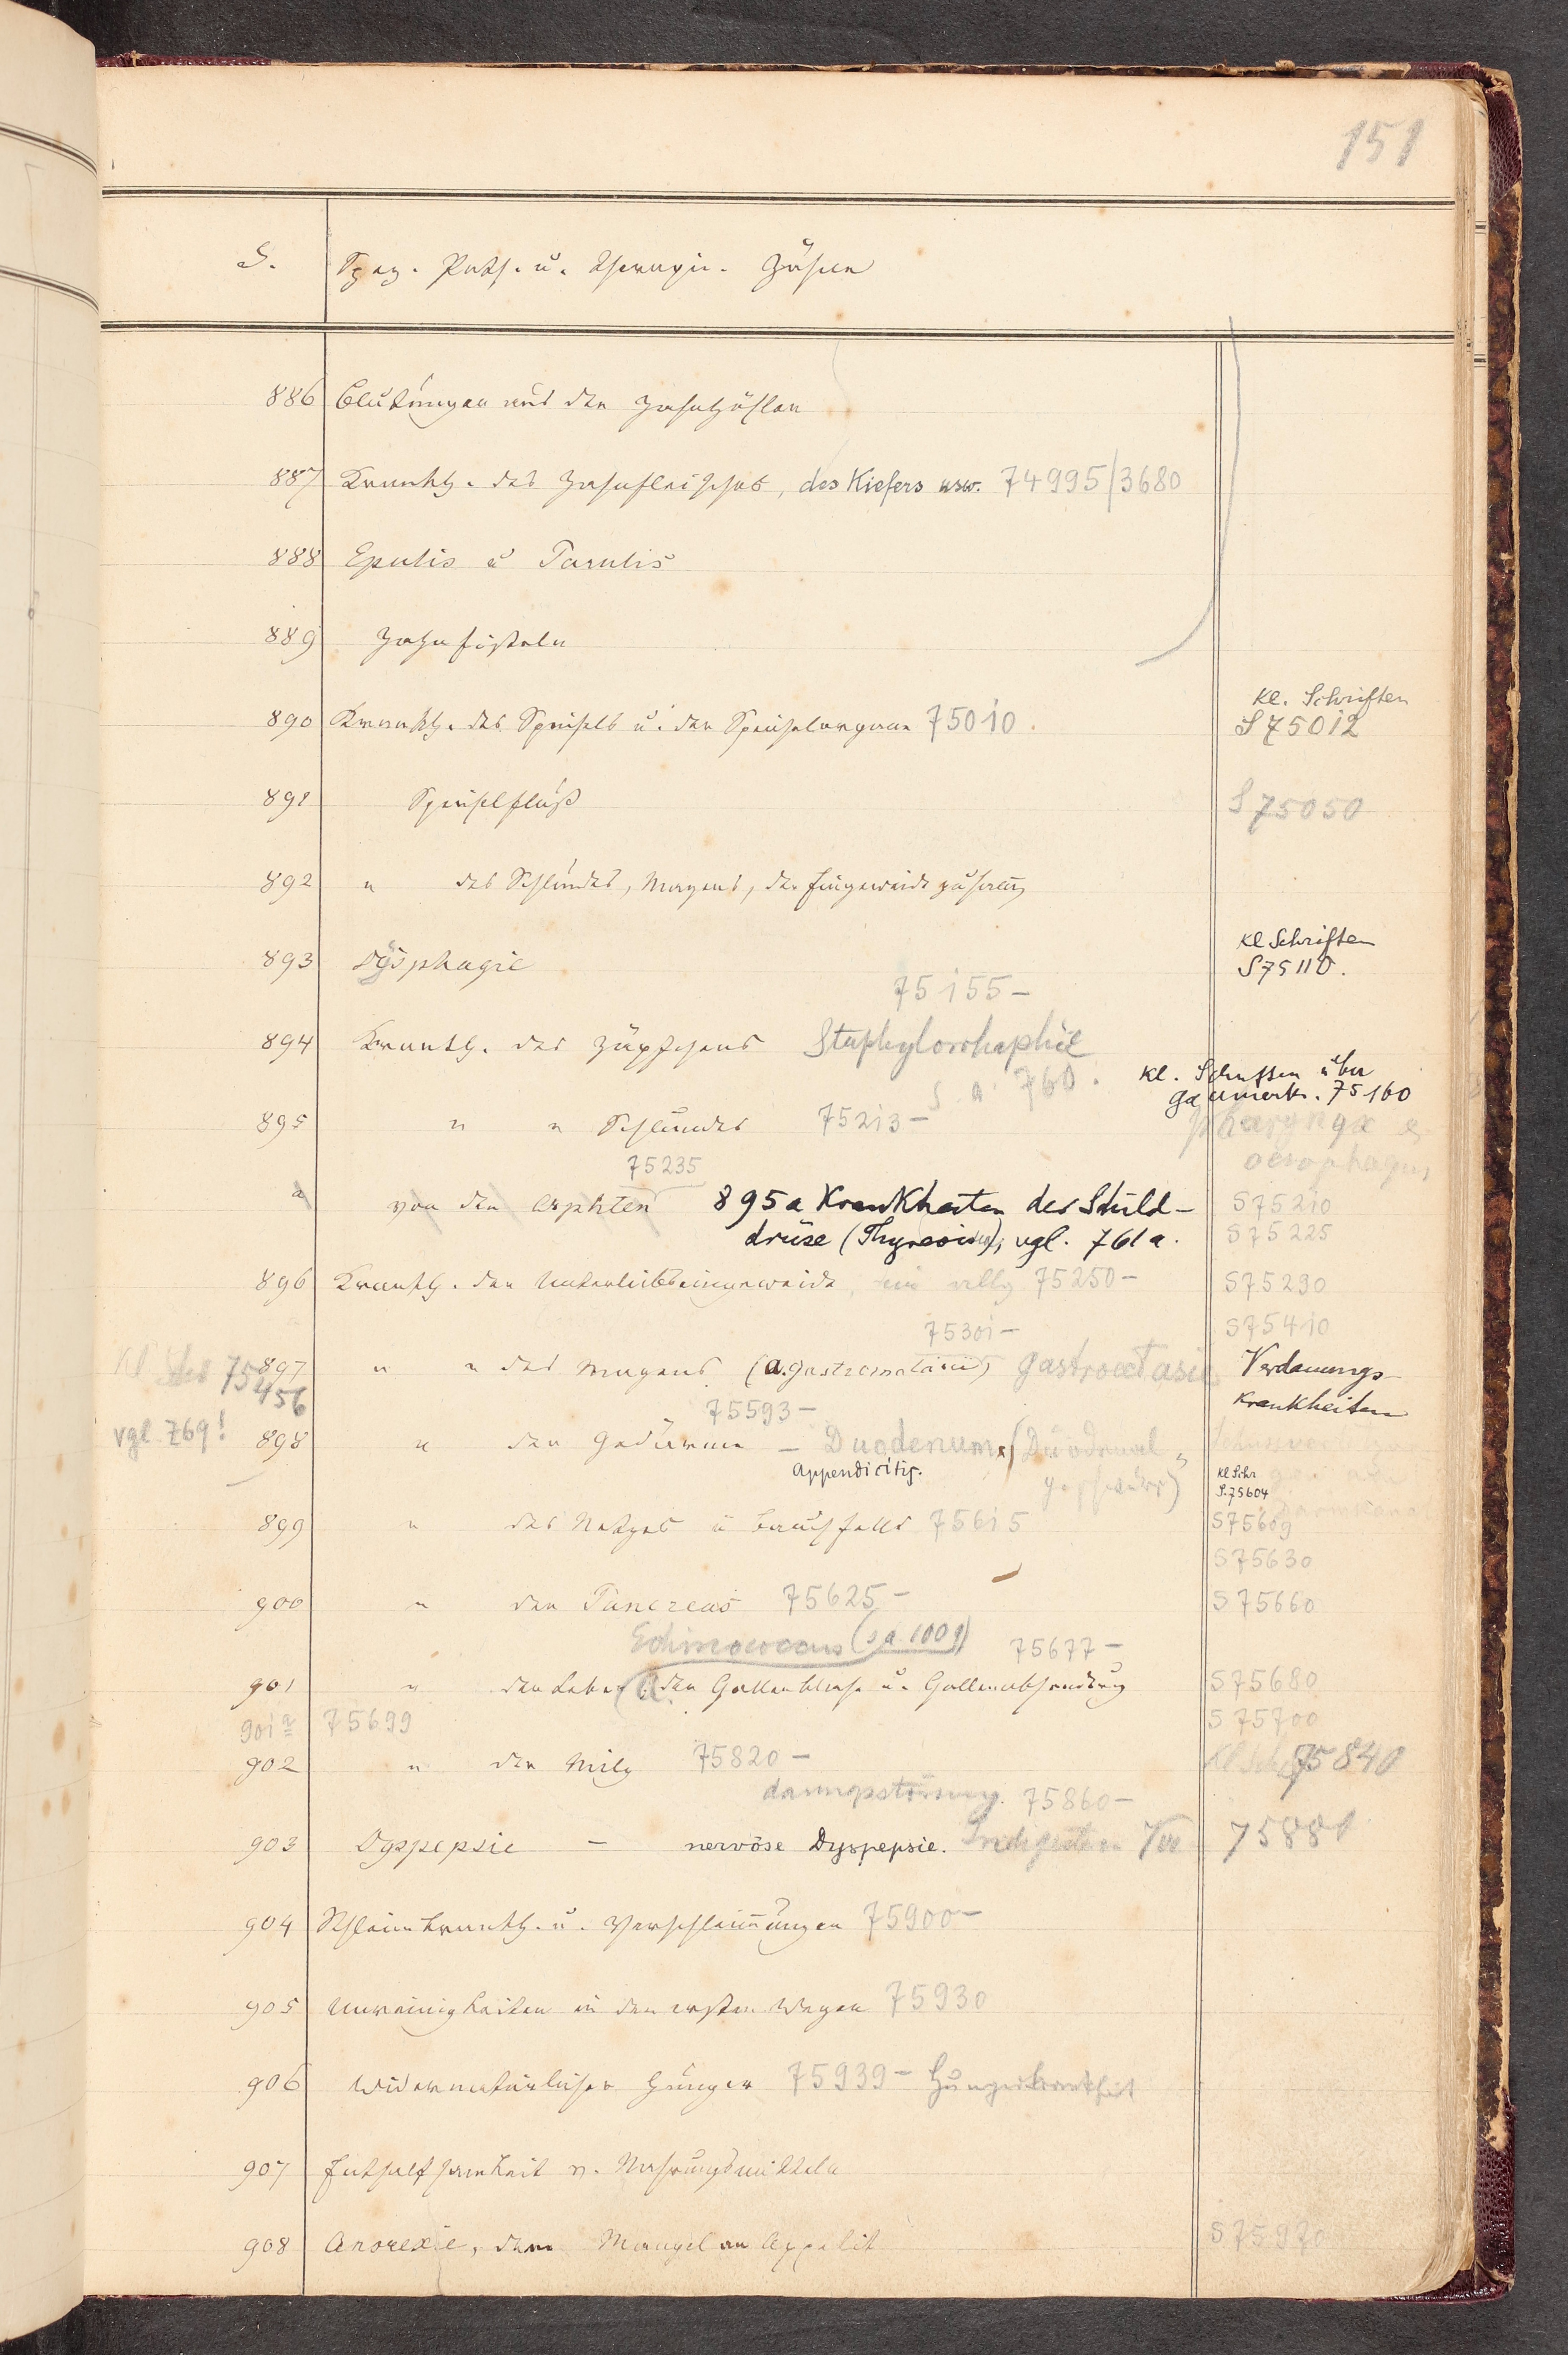 151
S. Spez. Path. u. Therapie. Zähne
886 Blutungen aus den Zahnhöhlen
887 Krankh. des Zahnfleisches, des Kiefers usw. 74995/3680
888 Epulis u Parulis
889 Zahnfisteln
890 Krankh. des Speichels u. der Speichelorgane 75010.
Kl. Schriften
S 75012
891 Speichelfluß
S 75050
892 " des Schlundes, Magens, der Eingeweide
893 Dysphagie
Kl Schriften
S 75110.
75155-
894 Krankh. des Zäpfchens Staphylorrhaphie
s. a. 760.
Kl. Schriften über
Gaumenkr. 75160
895 " " Schlundes 75213-
Pharynx &
oesophagus
75235
a von den Aphten 895a Krankheiten der Schild-
drüse (Thyreoidea), vgl. 761a.
S 75210
S 75225
896 Krankh. der Unterleibseingeweide, 75250-
S 75290
75301-
S 75410
Kl. 75456
897 " " des Magens (a. gastromalacie) Gastroectasie
Verdauungs-
krankheiten
75593-
vgl. 769!
898 " der Gedärme - Duodenum (Duodenal
geschwür)
Appendicitis.
Kl Schr
S. 75604
899 " des Netzes u Bauchfells 75615
S 75609
S 75630
900 " den Pancreas 75625-
S 75660
Echinococcus (s.a. 1009) 75677-
901 " der Leber, der Gallenblase u. Gallenabsonderung
S 75680
901a 75699
S 75700
902 " der Milz 75820-
Kl Schr 75840
dauungsstörung. 75860-
903 Dyspepsie - nervöse Dyspepsie. Indigestion Ver
75881
904 Schleimkrankh. u. Verschleimungen 75900-
905 Unreinigkeiten in den ersten Wegen 75930
906 Widernatürlicher Hunger 75939- Hungerkrankheit
907 Enthaltsamkeit v. Nahrungsmitteln
908 Anorexie, dem Mangel an Appetit
S 75970